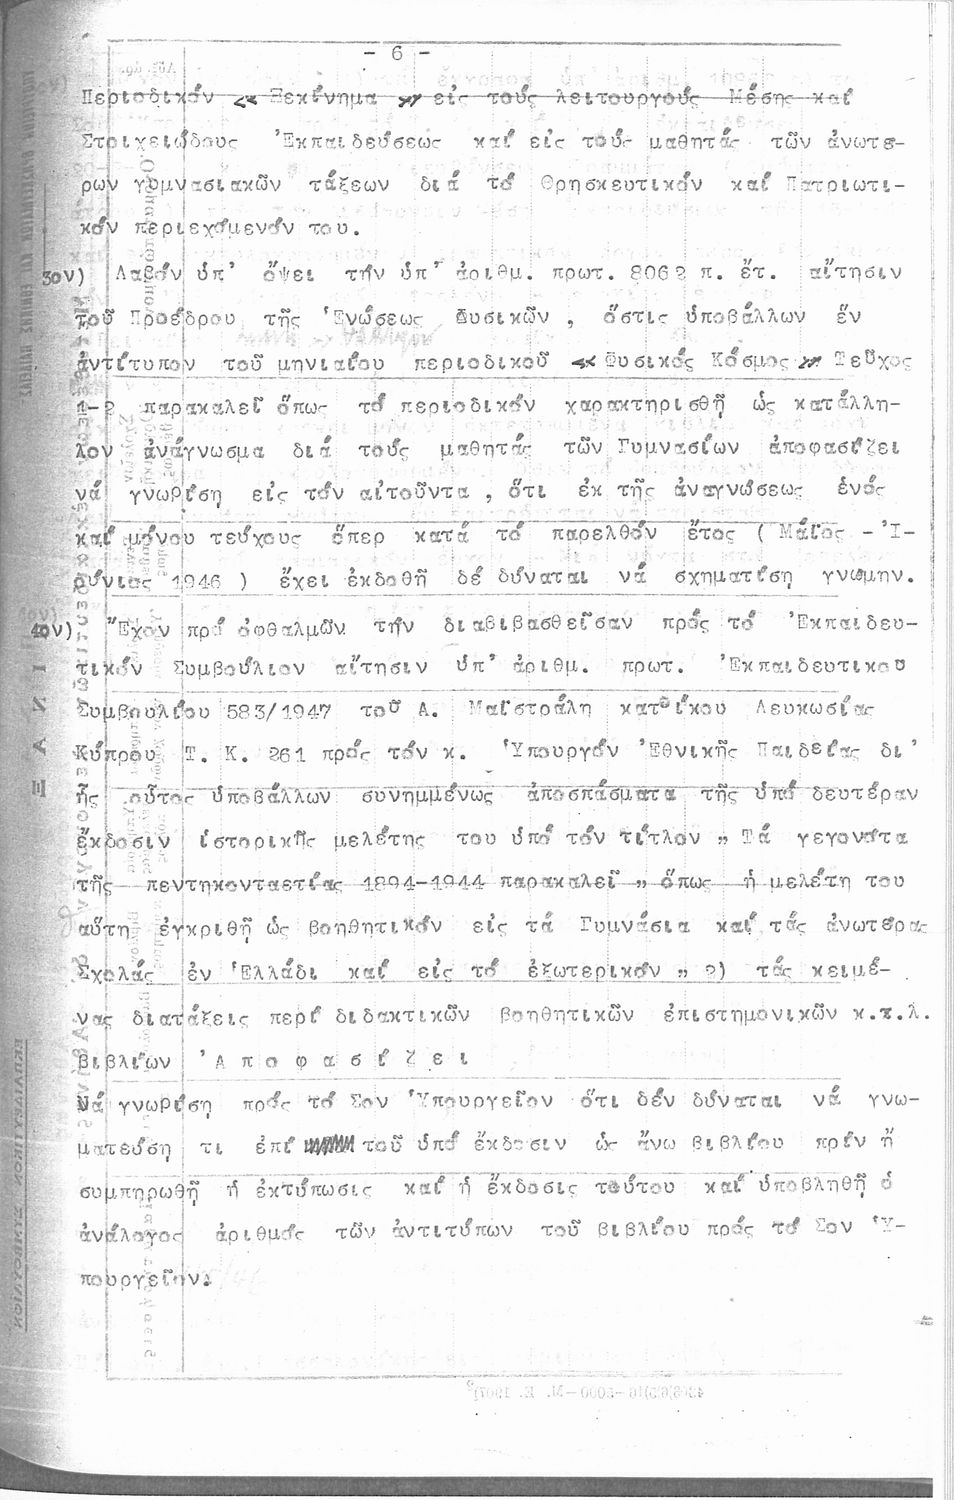 - 6 -
Περιοδικόν << Ξεκίνημα >> εἰς τούς λειτουργούς Μέσης καί
Στοιχειώδους Ἐκπαιδεύσεως καί εἰς τούς μαθητάς τῶν ἀνωτε-
ρων γυμνασιακῶν τάξεων διά τό Θρησκευτικόν καί Πατριωτι-
κόν περιεχόμενόν του.
3ον) Λαβόν ὑπ' ὄψει τήν ὑπ' ἀριθμ. πρωτ. 8062 π. ἔτ. αἴτησιν
τοῦ Προέδρου τῆς Ἑνώσεως Φυσικῶν , ὅστις ὑποβάλλων ἕν
ἀντίτυπον τοῦ μηνιαίου περιοδικοῦ << Φυσικός Κόσμος >> Τεῦχος
1-2 παρακαλεῖ ὅπως τό περιοδικόν χαρακτηρισθῇ ὡς κατάλλη-
λον ἀνάγνωσμα διά τούς μαθητάς τῶν Γυμνασίων ἀποφασίζει
νά γνωρίση εἰς τόν αἰτοῦντα , ὅτι ἐκ τῆς ἀναγνώσεως ἑνός
καί μόνου τεύχους ὅπερ κατά τό παρελθόν ἔτος ( Μάϊος - Ἰ-
ούνιος 1946 ) ἔχει ἐκδοθῆ δέ δύναται νά σχηματίση γνώμην.
4ον) Ἔχον πρό ὀφθαλμῶν τήν διαβιβασθεῖσαν πρός τό Ἐκπαιδευ-
τικόν Συμβούλιον αἴτησιν ὑπ' ἀριθμ. πρωτ. Ἐκπαιδευτικοῦ
Συμβουλίου 583/1947 τοῦ Α. Μαϊστράλη κατοίκου Λευκωσίας
Κύπρου Τ. Κ. 261 πρός τόν κ. Ὑπουργόν Ἐθνικῆς Παιδείας δι'
ἧς οὗτος ὑποβάλλων συνημμένως ἀποσπάσματα τῆς ὑπό δευτέραν
ἔκδοσιν ἱστορικῆς μελέτης του ὑπό τόν τίτλον " Τά γεγονότα
τῆς πεντηκονταετίας 1894-1944 παρακαλεῖ " ὅπως ἡ μελέτη του
αὕτη ἐγκριθῇ ὡς βοηθητικόν εἰς τά Γυμνάσια καί τάς ἀνωτέρας
Σχολάς ἐν Ἑλλάδι καί εἰς τό ἐξωτερικόν " 2) τάς κειμέ-
νας διατάξεις περί διδακτικῶν βοηθητικῶν ἐπιστημονικῶν κ.τ.λ.
βιβλίων Ἀ π ο φ α σ ί ζ ε ι
Νά γνωρίση πρός τό Σον Ὑπουργεῖον ὅτι δέν δύναται νά γνω-
ματεύση τι ἐπί τοῦ ὑπό ἔκδοσιν ὡς ἄνω βιβλίου πρίν ἤ
συμπηρωθῇ ἡ ἐκτύπωσις καί ἡ ἔκδοσις τούτου καί ὑποβληθῇ ὁ
ἀνάλογος ἀριθμός τῶν ἀντιτύπων τοῦ βιβλίου πρός τό Σον Ὑ-
πουργεῖον.